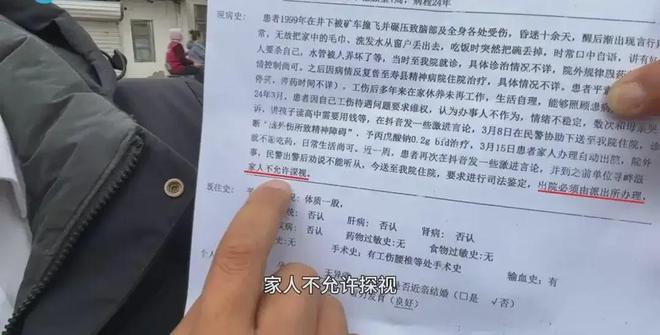 病程24年
现病史：
患者1999年在井下被矿车撞飞并碾压致脑部及全身各处受伤，昏迷十余天，醒后渐出现言行
常，无故把家中的毛巾、洗发水从窗户丢出去，吃饭时突然把碗丢掉，时常口中自语，讲有
人要杀自己，水管被人弄坏了等，当时至我院就诊，具体诊治情况不详，院外规律服药
情控制尚可。之后因病情反复曾至寿县精神病院住院治疗，具体情况不详。患者平
骨灵，带药时间不详）。工伤后多年来在家休养未再工作，生活自理，能够照顾患
24年3月，患者因自己工伤待遇问题要求维权，认为办事人不作为，情绪不稳定，数次和母亲
诉，讲孩子读高中需要用钱等，在抖音发一些激进言论，3月8日在民警协助下送至我院住院，诊
断“颅脑外伤所致精神障碍”，予丙戊酸钠0.2g bid治疗，3月15日患者家人办理自动出院，院外
就不吃药，日常生活尚可。近一周，患者再次在抖音发一些激进言论，并到之前单位寻衅滋
事，民警出警后劝说不能听从，今送至我院住院，要求进行司法鉴定，出院必须由派出所办理，
家人不允许探视。
既往史：
况：体质一般，
统： 否认 肝病： 否认 肾病： 否认
否认 药物过敏史：无 食物过敏史：无
手术史：有工伤腰椎等处手术史 输血史：有
个人
否近亲结婚（□是 √否）
发育（良好）
家人不允许探视